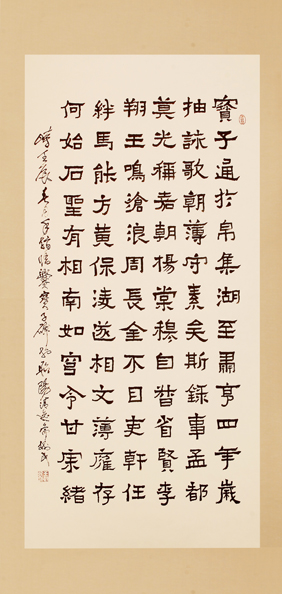 寶子通於帛集湖至肅亨四年歲
抽詠歌朝薄守素矣斯錄事孟都
莫光稱嘉朝楊棠穆自昔省賢李
翔王鳴滄浪周長全不目吏軒任
絆馬能方黄保淩遂相文薄龐存
何始石聖有相南如宮令甘宋緒
臨爨寶子碑